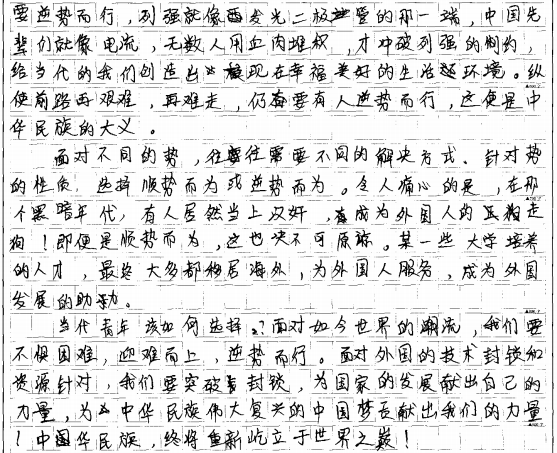 要逆势而行,列强就像要发光二极管的那一端,中国先
辈们就像电流,无数人用血肉堆积,才冲破列强的制约,
给当代的我们创造出现在幸福美好的生活环境。纵
使前路再艰难,再难走,仍有要有人逆势而行,这便是中
华民族的大义。
面对不同的势,往往需要不同的解决方式。针对势
的性质,选择顺势而为或逆势而为。令人痛心的是,在那
个黑暗年代,有人居然当上汉奸,成为外国人的走
狗!即便是顺势而为,这也决不可原谅。某一些大学培养
的人才,最终大多都移居海外,为外国人服务,成为外国
发展的助动。
当代青年该如何选择?面对如今世界的潮流,我们要
不惧困难,迎难而上,逆势而行。面对外国的技术封锁和
资源针对,我们要突破封锁,为国家的发展献出自己的
力量,为中华民族伟大复兴的中国梦献出我们的力量
!中国华民族,终将重新屹立于世界之巅!